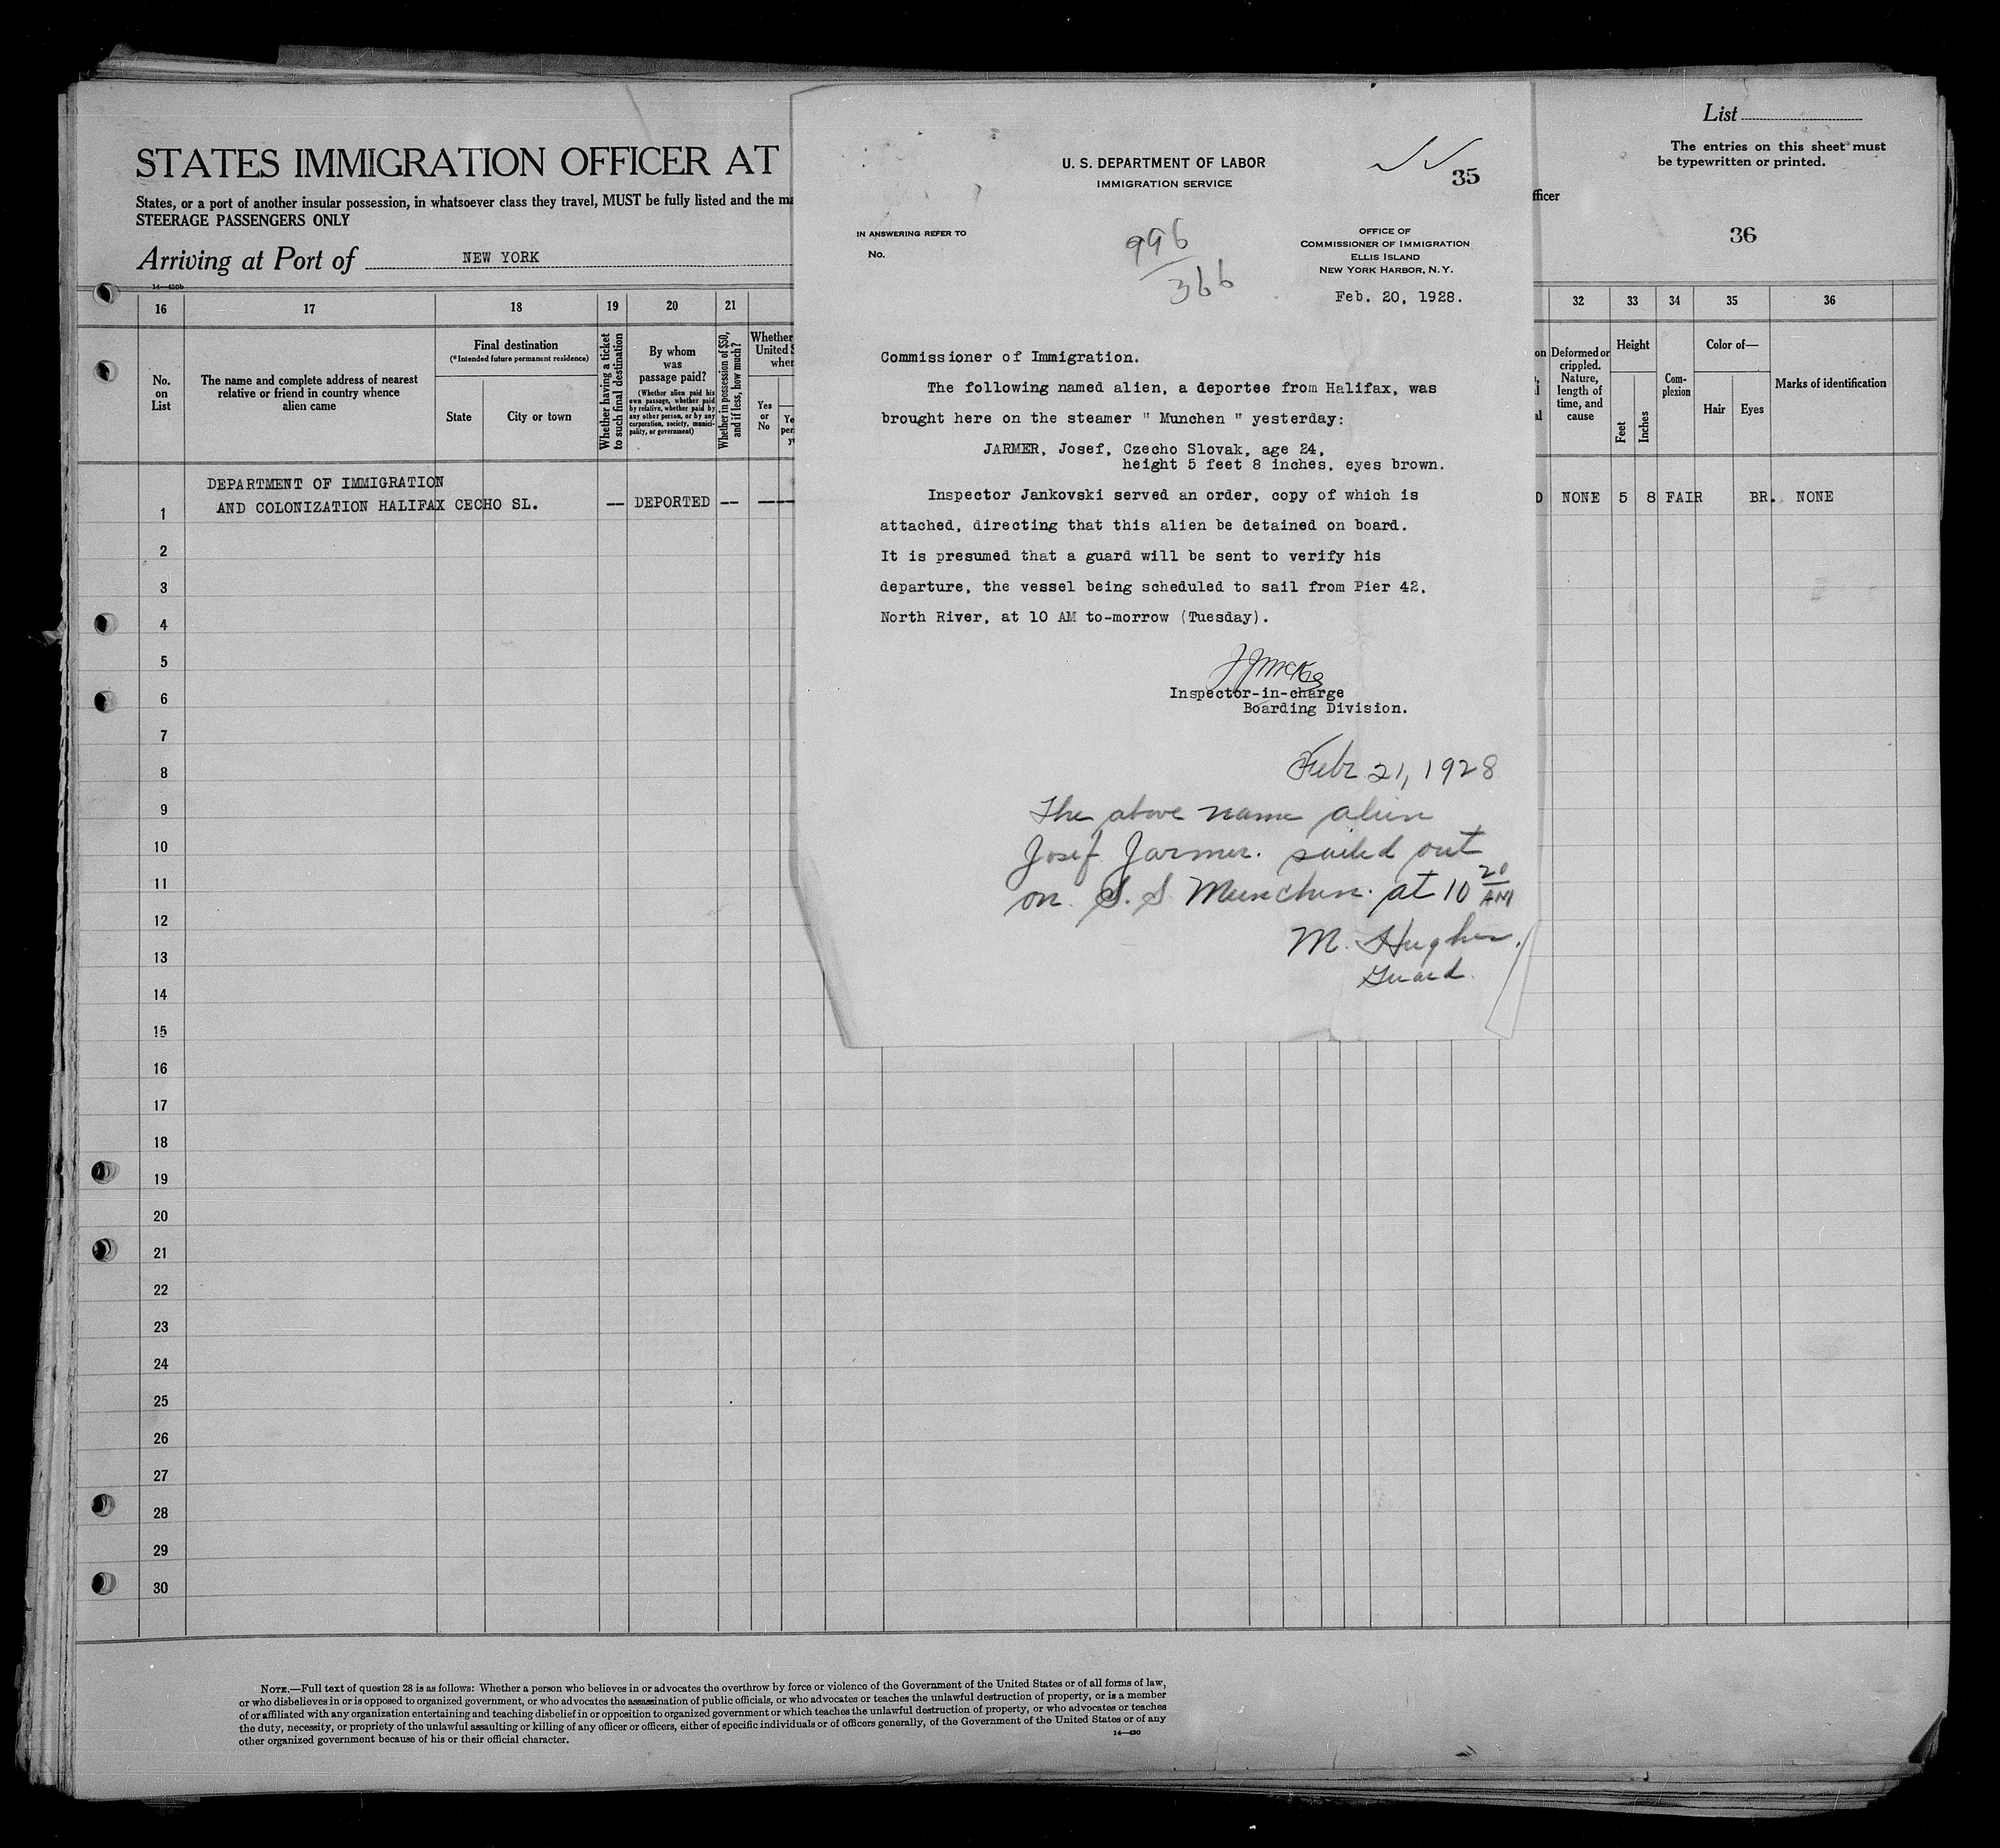 STATES IMMIGRATION OFFICER AT
States, or a port of another insular possession, in whatsoever class they travel, MUST be fully listed and the
STEERAGE PASSENGERS ONLY
Arriving at Port of NEW YORK
14—430b
List
The entries on this sheet must
be typewritten or printed.
36
16 17 18 19 20 21
No.
on
List
The name and complete address of nearest
relative or friend in country whence
alien came
Final destination
(*Intended future permanent residence)
State
City or town
Whether having a ticket
to such final destination
By whom
was
passage paid?
(Whether alien paid his
own passage, whether paid
by relative, whether paid by
any other person, or by any
corporation, society, munici-
pality, or government)
Whether in possession of $50,
and if less, how much?
Whether
United
Yes
or
No
32 33 34 35 36
Deformed or
crippled.
Nature,
length of
time, and
cause
Height
Feet
Inches
Com-
plexion
Color of—
Hair
Eyes
Marks of identification
DEPARTMENT OF IMMIGRATION
1 AND COLONIZATION HALIFAX CECHO SL. -- DEPORTED --
NONE 5 8 FAIR BR. NONE
2
3
4
5
6
7
8
9
10
11
12
13
14
15
16
17
18
19
20
21
22
23
24
25
26
27
28
29
30
U. S. DEPARTMENT OF LABOR
IMMIGRATION SERVICE
35
IN ANSWERING REFER TO
No.
996
366
OFFICE OF
COMMISSIONER OF IMMIGRATION
ELLIS ISLAND
NEW YORK HARBOR, N.Y.
Feb. 20, 1928.
Commissioner of Immigration.
The following named alien, a deportee from Halifax, was
brought here on the steamer " Munchen " yesterday:
JARMER, Josef, Czecho Slovak, age 24,
height 5 feet 8 inches, eyes brown.
Inspector Jankovski served an order, copy of which is
attached, directing that this alien be detained on board.
It is presumed that a guard will be sent to verify his
departure, the vessel being scheduled to sail from Pier 42,
North River, at 10 AM to-morrow (Tuesday).
Inspector-in-charge
Boarding Division.
Febr 21, 1928
The above name alien
Josef Jarmer. sailed out
on S. S Munchen. at 10 20 AM
M. Hughes.
Guard.
NOTE.—Full text of question 28 is as follows: Whether a person who believes in or advocates the overthrow by force or violence of the Government of the United States or of all forms of law,
or who disbelieves in or is opposed to organized government, or who advocates the assassination of public officials, or who advocates or teaches the unlawful destruction of property, or is a member
of or affiliated with any organization entertaining and teaching disbelief in or opposition to organized government or which teaches the unlawful destruction of property, or who advocates or teaches
the duty, necessity, or propriety of the unlawful assaulting or killing of any officer or officers, either of specific individuals or of officers generally, of the Government of the United States or of any
other organized government because of his or their official character.
14—430